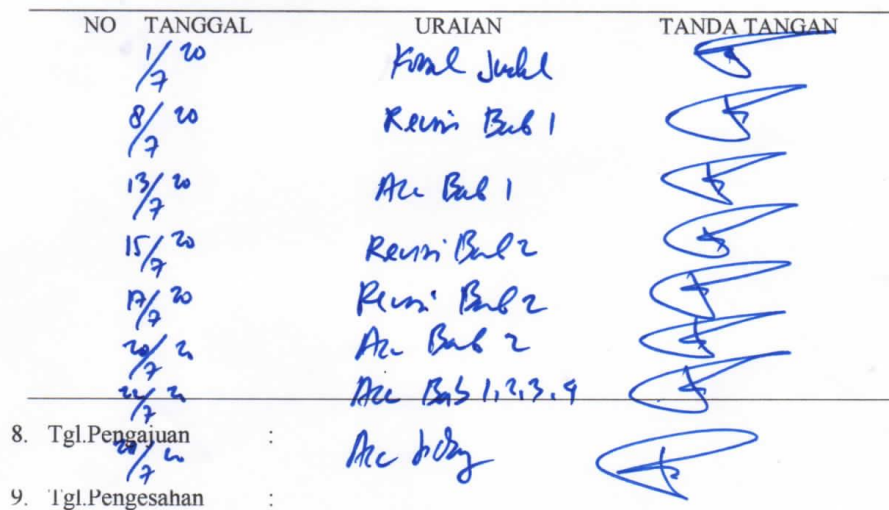 NO TANGGAL URAIAN TANDA TANGAN
1/7 20 Judul
8/7 20 Revisi Bab 1
13/7 20 Acc Bab 1
15/7 20 Revisi Bab 2
17/7 20 Revisi Bab 2
20/7 20 Acc Bab 2
22/7 20 Acc Bab 1, 2, 3, 4
8. Tgl.Pengajuan :
/7 20 Acc
9. Tgl.Pengesahan :